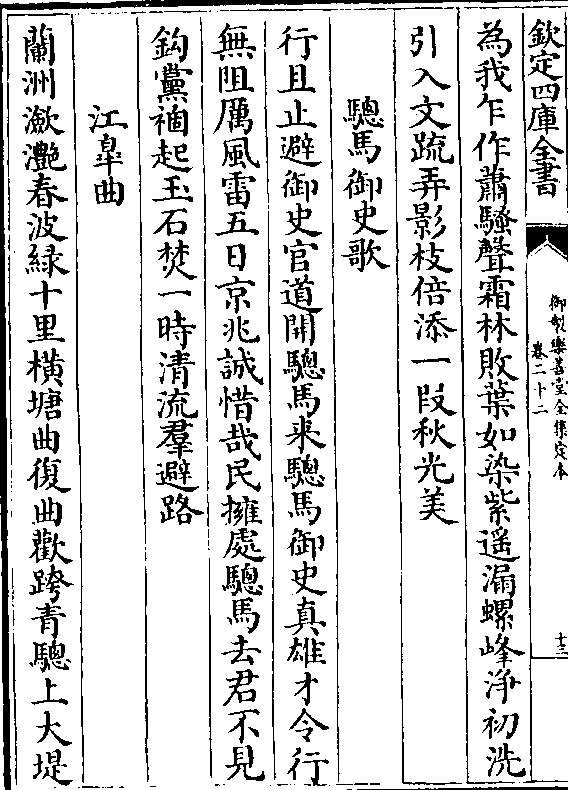 欽定四庫全書
御製樂善堂全集定本
卷二十二
十三
為我乍作蕭騷聲霜林敗葉如染紫遥漏螺峰淨初洗
引入文疏弄影枝倍添一段秋光美
驄馬御史歌
行且止避御史官道開驄馬来驄馬御史真雄才令行
無阻厲風雷五日京兆誠惜哉民擁處驄馬去君不見
鈎黨禍起玉石焚一時清流羣避路
江臯曲
蘭洲瀲灔春波緑十里橫塘曲復曲歡跨青驄上大堤